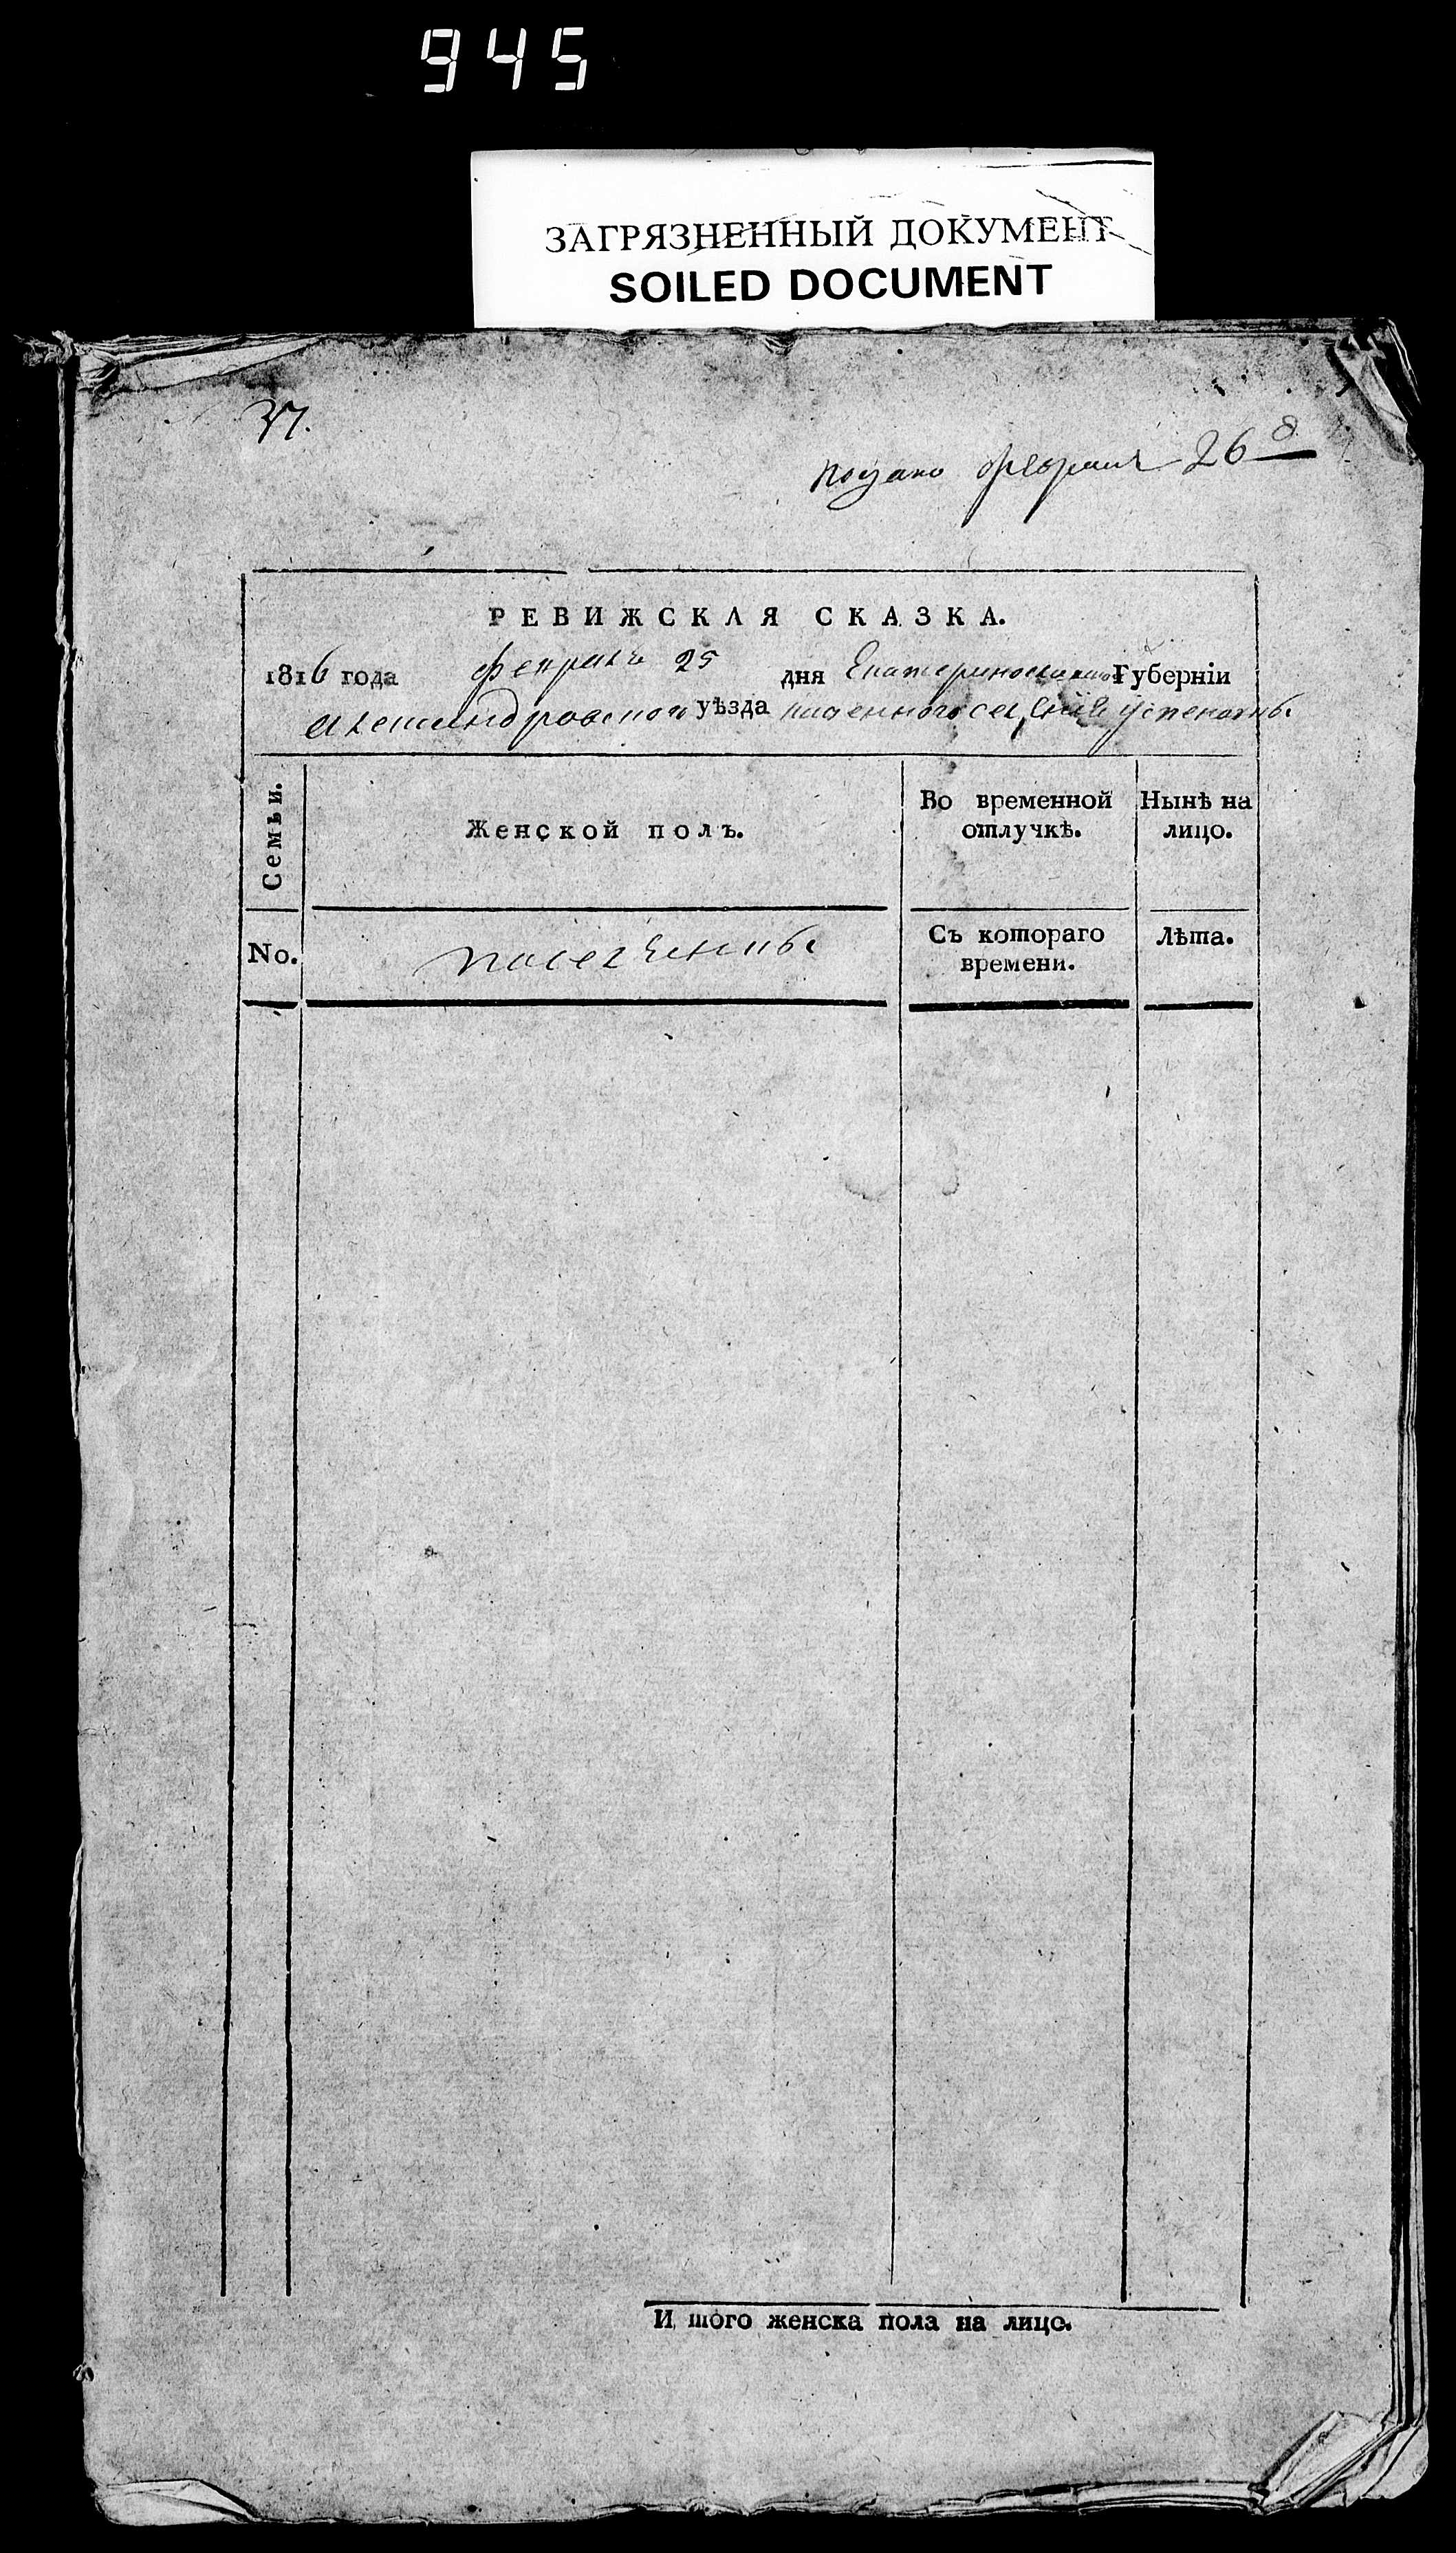 945
ЗАГРЯЗНЕННЫЙ ДОКУМЕНТ
SOILED DOCUMENT
37.
подано февраля 26 д
РЕВИЖСКАЯ СКАЗКА.
1816 года февраля 25 дня Екатеринославской Губернїи
Александровского уѣзда казенного селенїя Успеновки
Семьи.
Женской полъ.
Во временной
отлучкѣ.
Нынѣ на
лицо.
No.
поселенцы
Съ котораго
времени.
Лѣта.
И того женска пола на лицо.